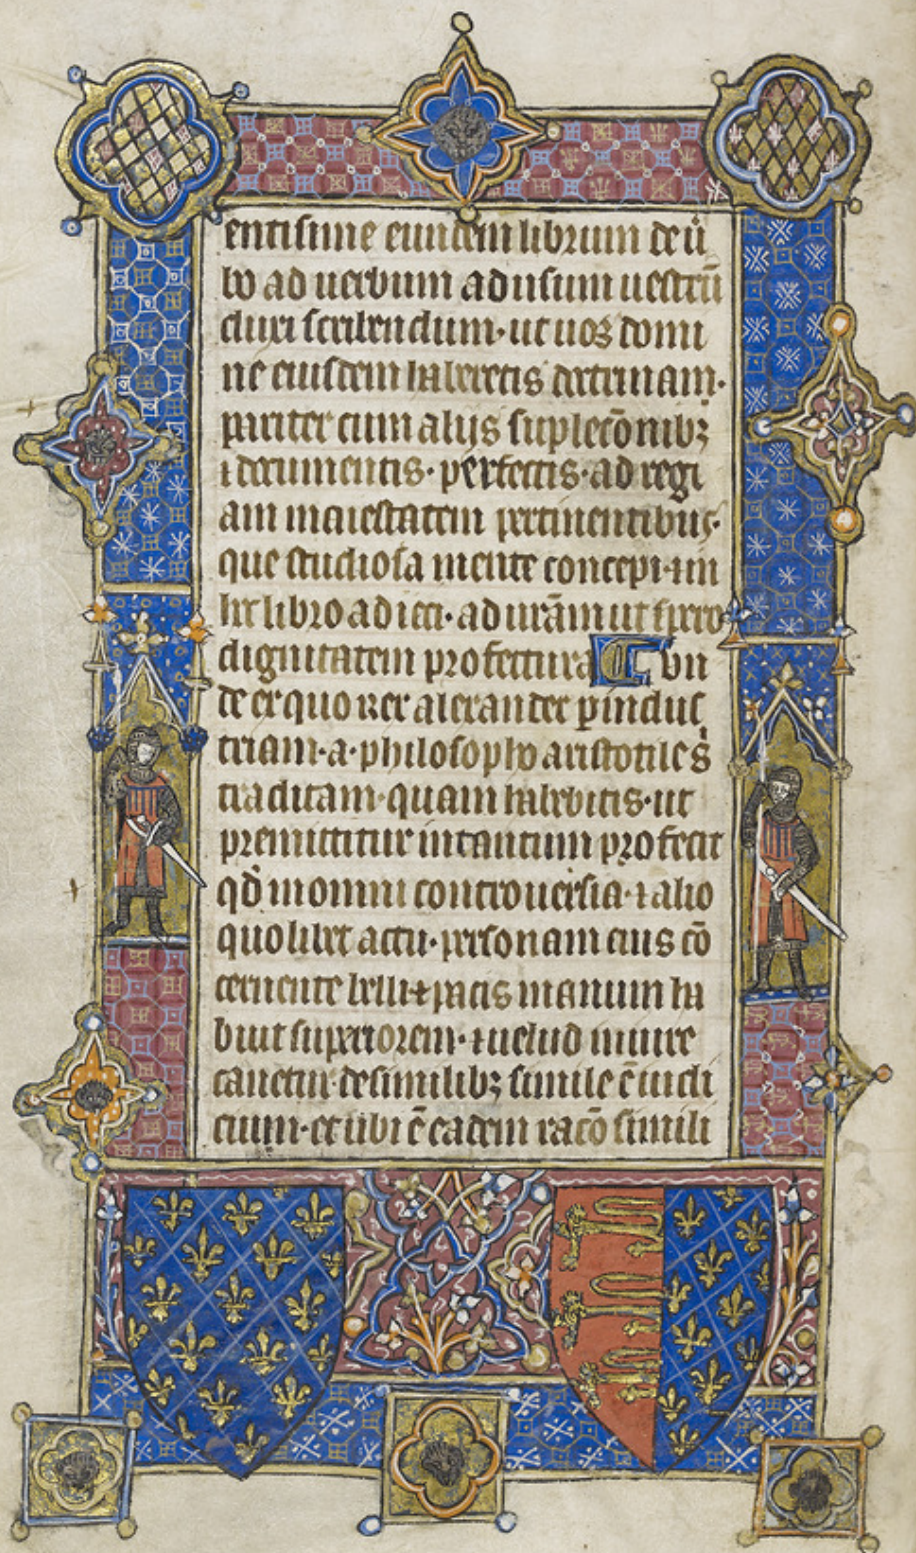 entissime eundem librum de ũ
bo ad uerbum ad usum uestrũ
duxi scribendum · ut uos domi
ne eiusdem haberetis doctrinam ·
pariter cum alijs suplecōnibꝫ
⁊ documentis · perfectis · ad regi
am maiestatem pertinentibus ·
que studiosa mente concepi · ⁊ in
hoc libro adieci · ad ur̃am ut spero
dignitatem profectura Vn
de ex quo rex alexander per indus
triam · a · philosopho aristotiles
traditam · quam habebitis · ut
premittitur in tantum profecit
qđ in omni controuersia · ⁊ alio
quolibet actu · personam eius cō
cernente belli ⁊ pacis manum ha
buit superiorem · ⁊ uelud in iure
cauetur · de similibꝫ simile ē iudi
cium · et ubi ē eadem racō simili